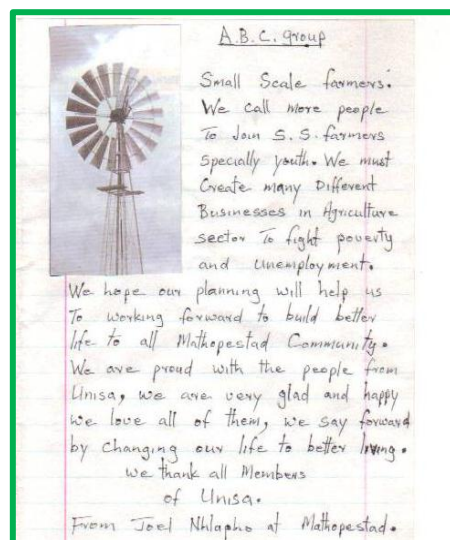 A.B.C. group
Small Scale farmers.
We call more people
To Join S.S. farmers
specially youth. We must
Create many Different
Businesses in Agriculture
sector To fight poverty
and unemployment.
We hope our planning will help us
To working forward to build better
life to all Mathopestad Community.
We are proud with the people from
Unisa, we are very glad and happy
we love all of them, we say forward
by changing our life to better living.
we thank all Members
of Unisa.
From Joel Nhlapho at Mathopestad.